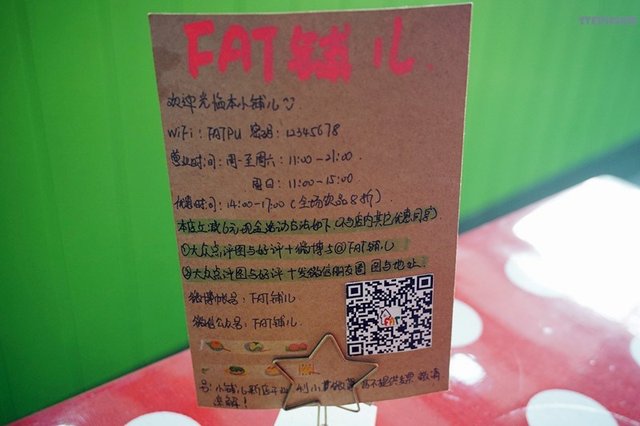 FAT铺儿.
欢迎光临本小铺儿
WiFi: FATPU 密码: 12345678
营业时间: 周一至周六: 11:00-21:00
周日: 11:00-15:00
优惠时间: 14:00-17:00 (全场饮品8折)
本店立减6元现金活动方法如下(不与店内其它优惠同享)
①大众点评图与好评+微博与@FAT铺儿
②大众点评图与好评+发微信朋友圈 图与地址.
微博帐号: FAT铺儿
微信公众号: FAT铺儿.
小铺儿新店开业 暂不提供发票 敬请
谅解!